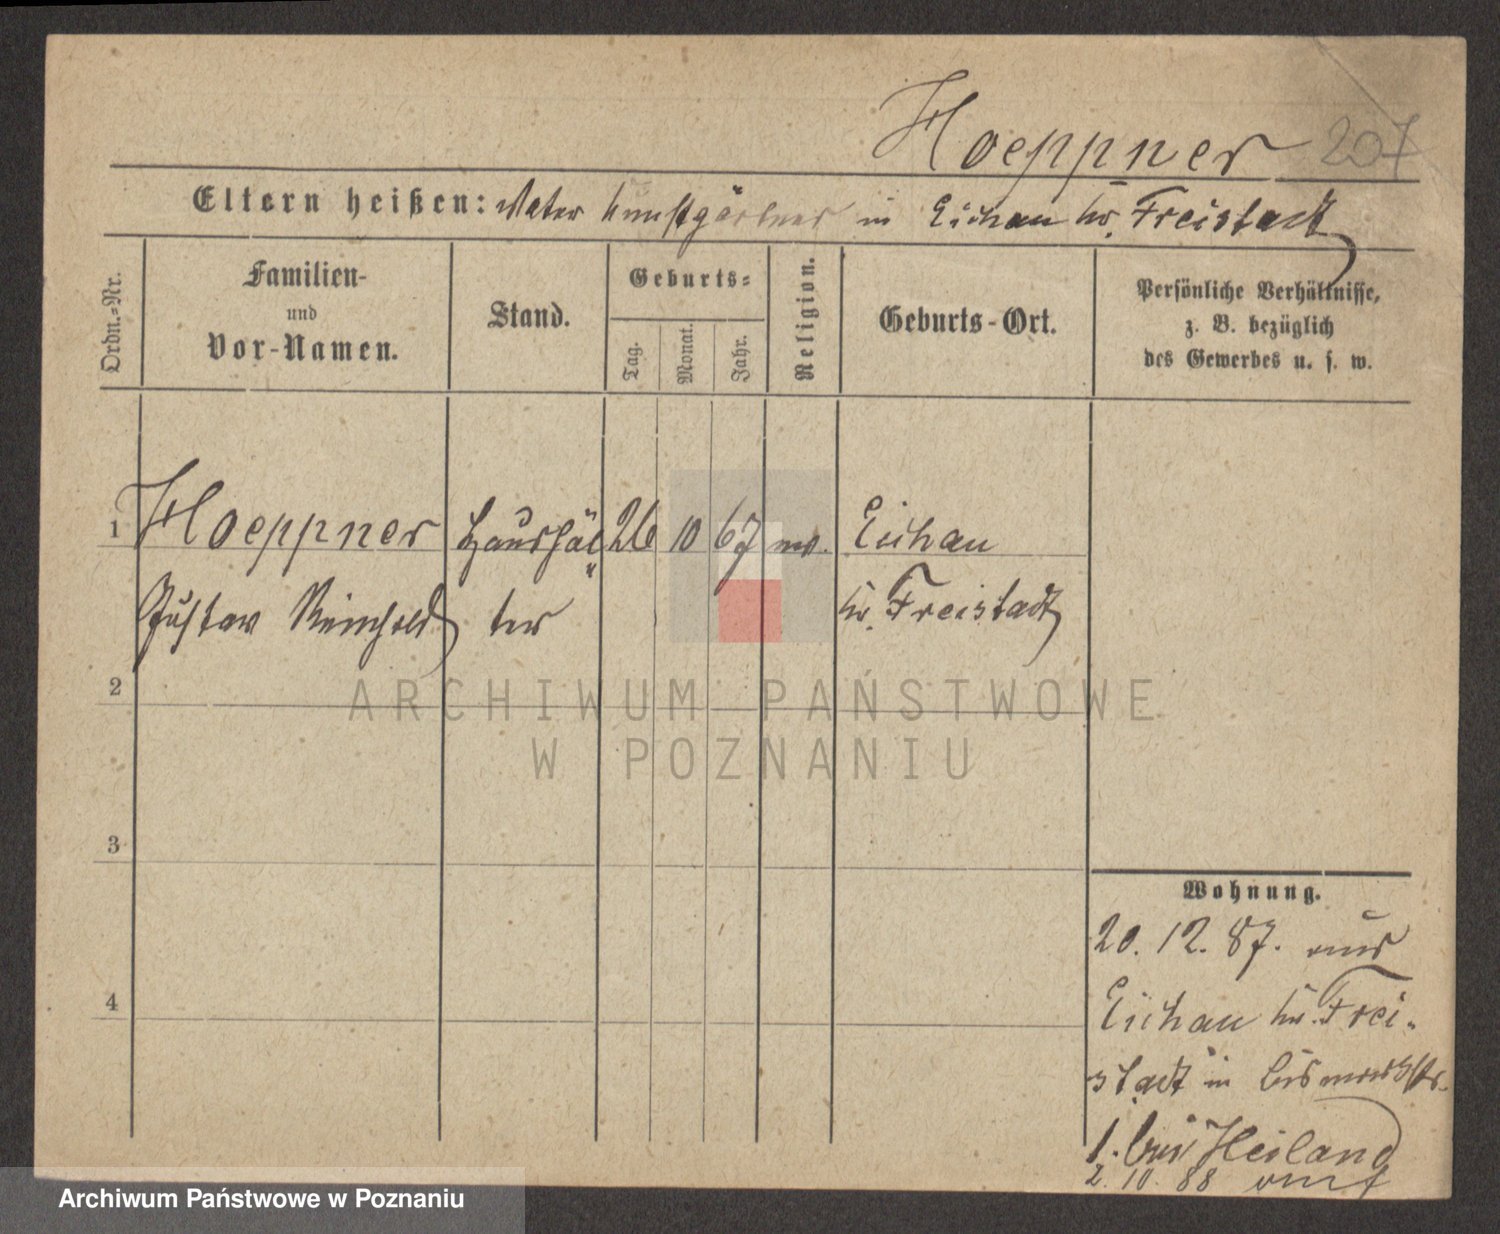 Hoeppner 207
Eltern heißen: Vater Kunstgärtner in Eichau Kr. Freistadt
Ordn.-Nr.
Familien-
und
Vor-Namen.
Stand.
Geburts-
Tag.
Monat.
Jahr.
Religion.
Geburts-Ort.
Persönliche Verhältnisse,
z. B. bezüglich
des Gewerbes u. s. w.
1 Hoeppner Haushäl 26 10 67 ev. Eichau
Gustav Reinhold ter Kr. Freistadt
2
ARCHIWUM PAŃSTWOWE
W POZNANIU
3
4
Wohnung.
20. 12. 87. aus
Eichau Kr. Frei-
stadt in Bismarckstr.
1. bei Heiland
2. 10. 88
Archiwum Państwowe w Poznaniu